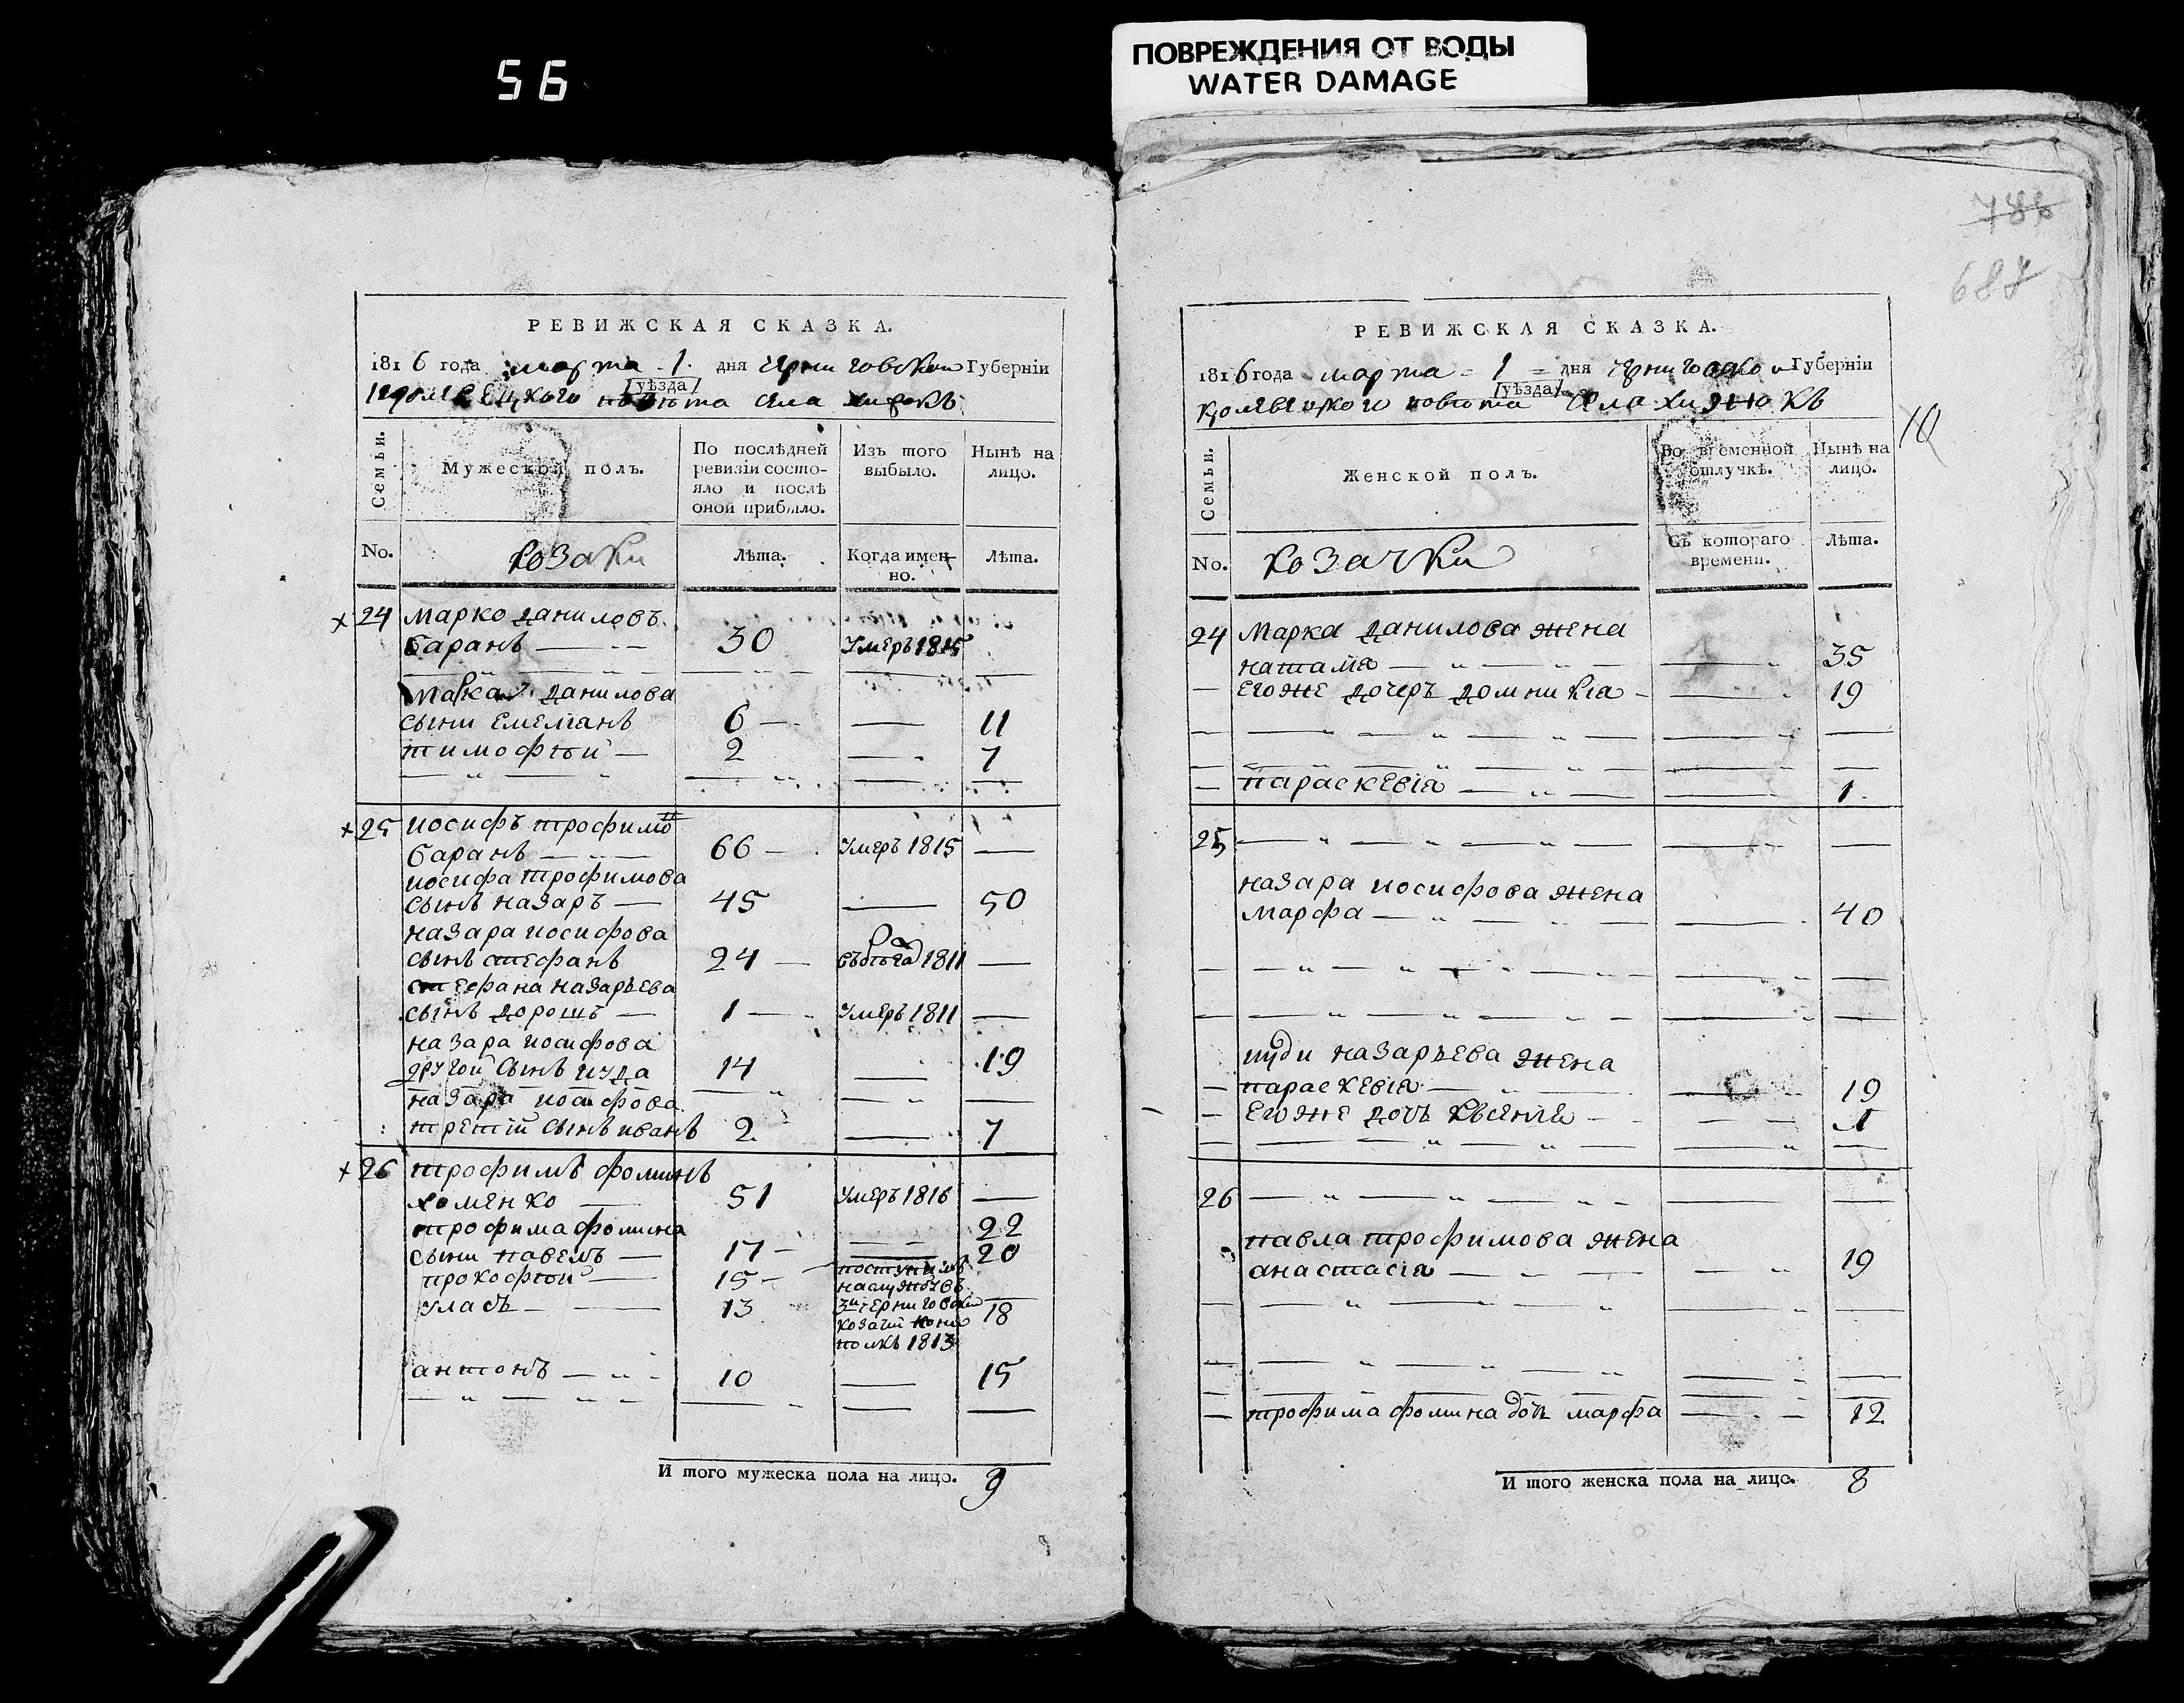 56
ПОВРЕЖДЕНИЯ ОТ ВОДЫ
WATER DAMAGE
РЕВИЖСКАЯ СКАЗКА.
1816 года марта 1. дня Черниговской Губерніи
Кролевецкого повѣта /уѣзда/ села
Семьи.
Мужеской полъ.
По послѣдней ревизіи состояло и послѣ оной прибыло.
Изъ того выбыло.
Нынѣ на лицо.
No. козаки Лѣта. Когда именно. Лѣта.
х 24 марко даниловъ
баранъ 30 умеръ 1815
марка данилова
сыни емелianъ 6 — — 11
тимофѣй — 2 — 7
х 25 иосифъ трофимо
баранъ 66 — умеръ 1815 —
иосифа трофимова
сынъ назаръ — 45 — 50
назара иосифова
сынъ стефанъ 24 — 1811 —
стефана назаръева
сынъ дорошъ — 1 — умеръ 1811 —
назара иосифова
другой сынъ иуда 14 — 19
назара иосифова
третій сынъ иванъ 2 — 7
х 26 трофимъ фоминъ
хоменко 51 умеръ 1816 —
трофима фомина 22
сыни павелъ — 17 — 20
прокофѣй — 15 — поступилъ
на службувъ
уласъ — 13 3й черниговски 18
козачи кони
полкъ 1813
антонъ 10 — 15
И того мужеска пола на лицо. 9
786
687
РЕВИЖСКАЯ СКАЗКА.
1816 года марта 1 дня Черниговской Губерніи
Кролевецкого повѣта /уѣзда/ села хижокъ
10
Семьи.
Женской полъ.
Во временной отлучкѣ.
Нынѣ на лицо.
No. козачки Съ котораго времени. Лѣта.
24 Марка данилова жена
наталia 35
— егоже дочеръ домникia 19
— параскевia 1
25
назара иосифова жена
марфа 40
иуди назаръева жена
— параскевia 19
— егоже дочъ 1
26
павла трофимова жена
анастасia 19
— трофима фомина дочъ марфа 12
И того женска пола на лицо. 8